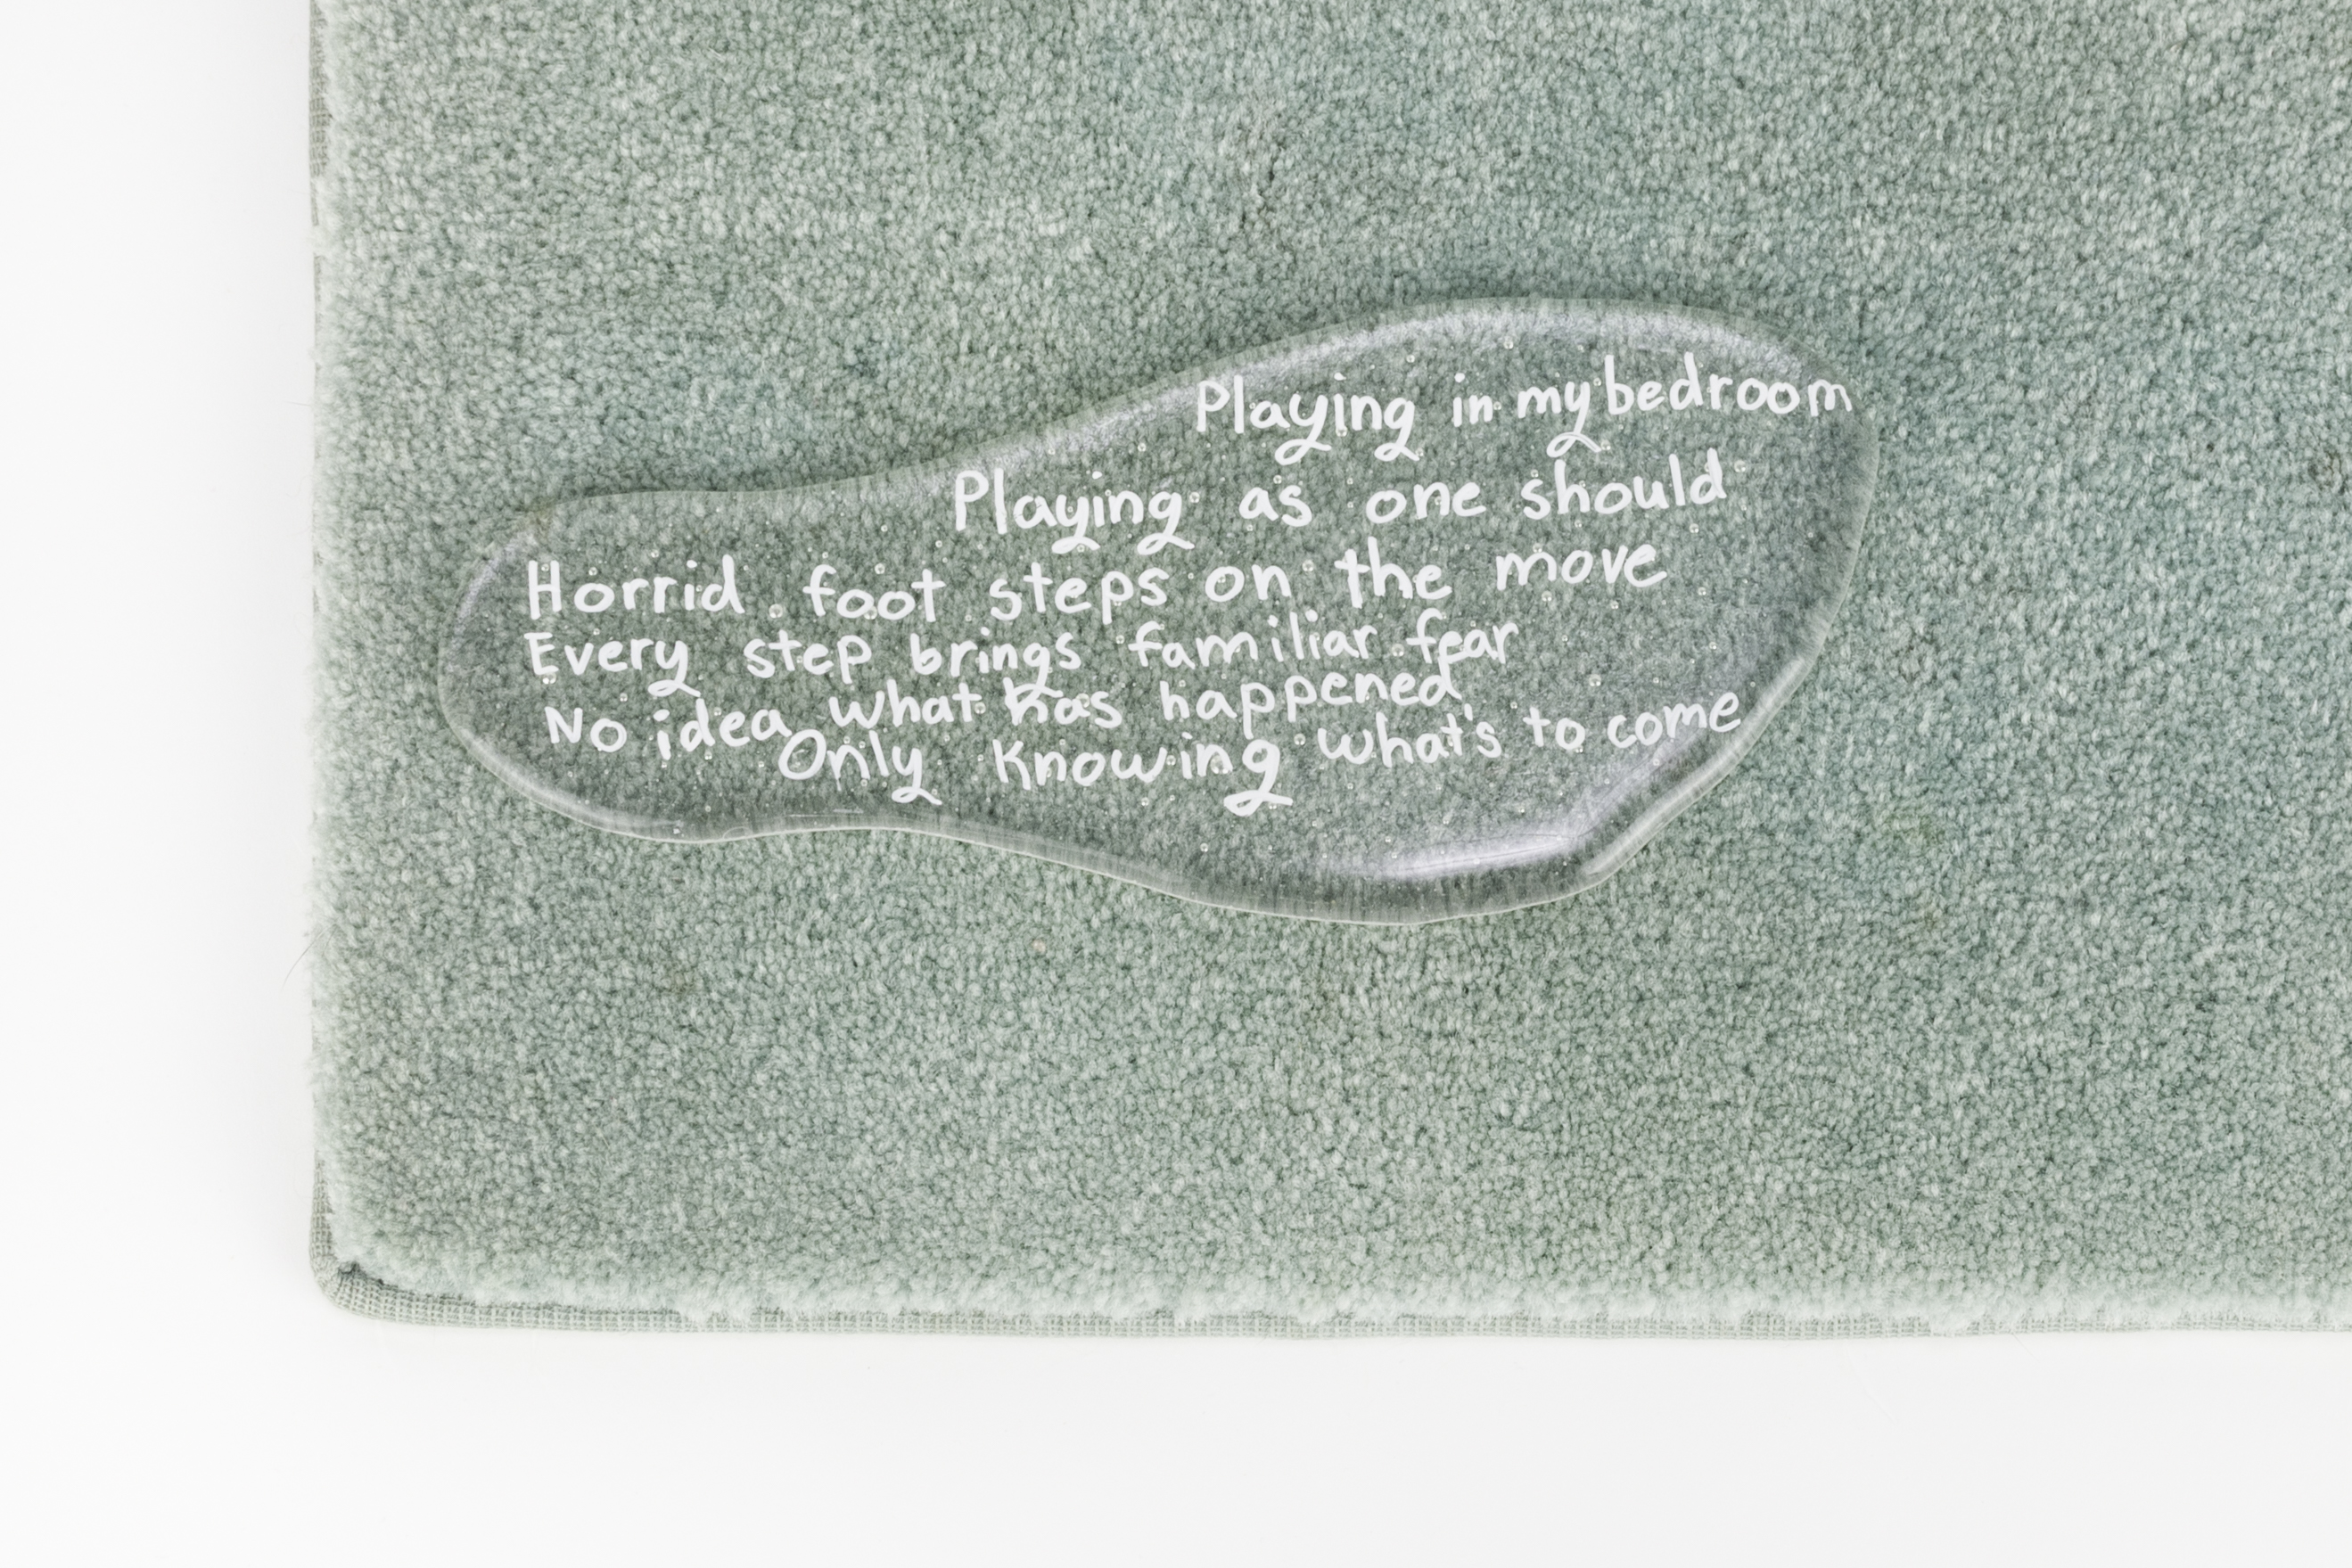 Playing in my bedroom
Playing as one should
Horrid foot steps on the move
Every step brings familiar fear
No idea what has happened
Only Knowing what's to come